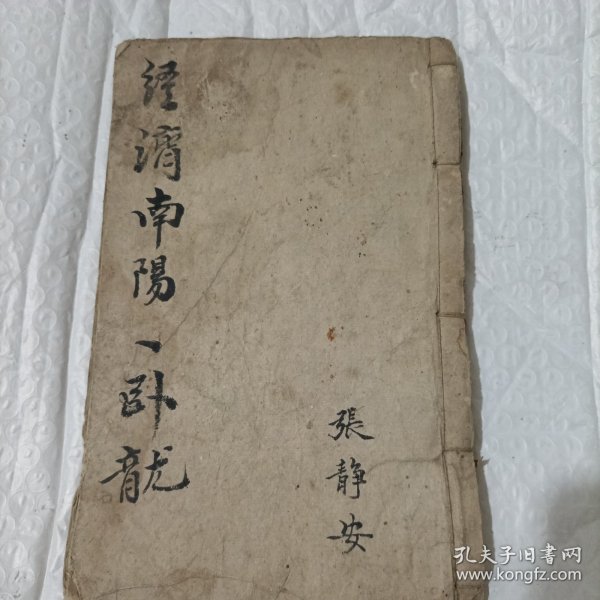 經濟南陽一卧龍
張静安
孔夫子旧書网
www.kongfz.com